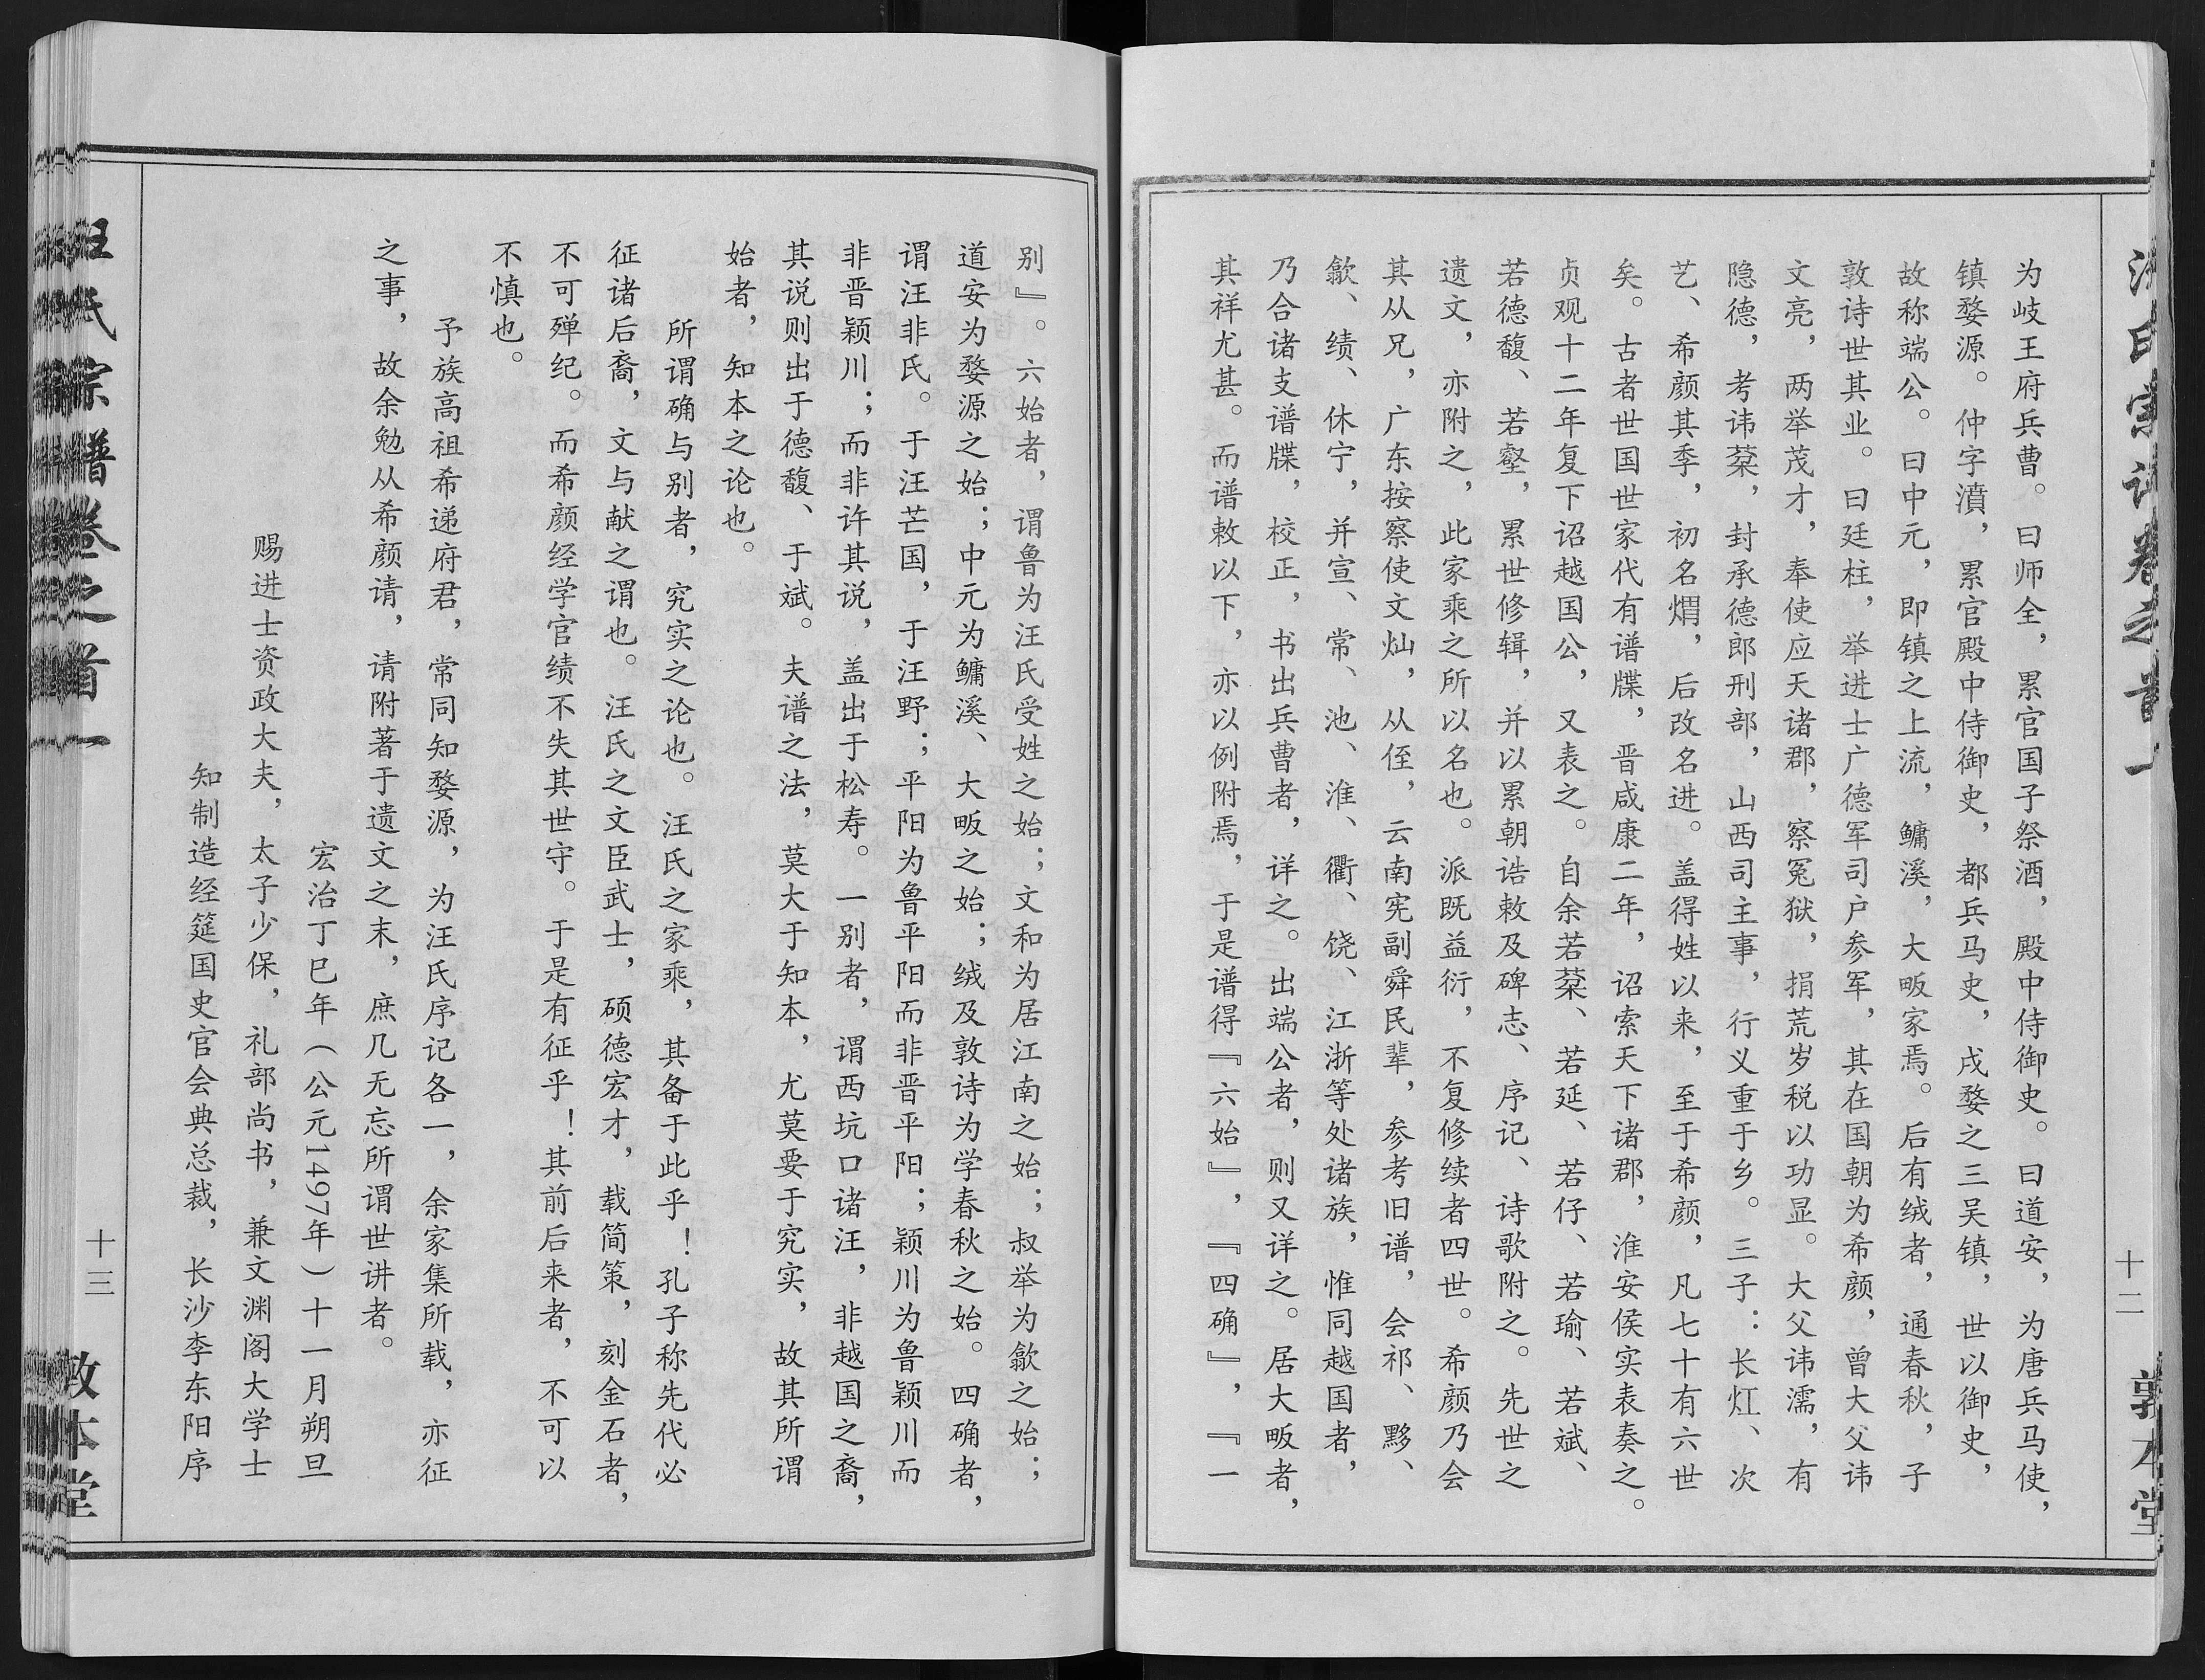 为岐王府兵曹。曰师全，累官国子祭酒，殿中侍御史。曰道安，为唐兵马使，
镇婺源。仲字濆，累官殿中侍御史，都兵马史，戌婺之三吴镇，世以御史，
故称端公。曰中元，即镇之上流，鳙溪，大畈家焉。后有绒者，通春秋，子
敦诗世其业。曰廷柱，举进士广德军司户参军，其在国朝为希颜，曾大父讳
文亮，两举茂才，奉使应天诸郡，察冤狱，捐荒岁税以功显。大父讳濡，有
隐德，考讳棻，封承德郎刑部，山西司主事，行义重于乡。三子：长灴、次
艺、希颜其季，初名煟，后改名进。盖得姓以来，至于希颜，凡七十有六世
矣。古者世国世家代有谱牒，晋咸康二年，诏索天下诸郡，淮安侯实表奏之。
贞观十二年复下诏越国公，又表之。自余若棻、若延、若仔、若瑜、若斌、
若德馥、若壑，累世修辑，并以累朝诰敕及碑志、序记、诗歌附之。先世之
遗文，亦附之，此家乘之所以名也。派既益衍，不复修续者四世。希颜乃会
其从兄，广东按察使文灿，从侄，云南宪副舜民辈，参考旧谱，会祁、黟、
歙、绩、休宁，并宣、常、池、淮、衢、饶、江浙等处诸族，惟同越国者，
乃合诸支谱牒，校正，书出兵曹者，详之。出端公者，则又详之。居大畈者，
其祥尤甚。而谱敕以下，亦以例附焉，于是谱得『六始』，『四确』，『一
十二
敦本堂
别』。六始者，谓鲁为汪氏受姓之始；文和为居江南之始；叔举为歙之始；
道安为婺源之始；中元为鳙溪、大畈之始；绒及敦诗为学春秋之始。四确者，
谓汪非氏。于汪芒国，于汪野；平阳为鲁平阳而非晋平阳；颖川为鲁颖川而
非晋颖川；而非许其说，盖出于松寿。一别者，谓西坑口诸汪，非越国之裔，
其说则出于德馥、于斌。夫谱之法，莫大于知本，尤莫要于究实，故其所谓
始者，知本之论也。
所谓确与别者，究实之论也。汪氏之家乘，其备于此乎！孔子称先代必
征诸后裔，文与献之谓也。汪氏之文臣武士，硕德宏才，载简策，刻金石者，
不可殚纪。而希颜经学官绩不失其世守。于是有征乎！其前后来者，不可以
不慎也。
予族高祖希递府君，常同知婺源，为汪氏序记各一，余家集所载，亦征
之事，故余勉从希颜请，请附著于遗文之末，庶几无忘所谓世讲者。
宏治丁巳年（公元1497年）十一月朔旦
赐进士资政大夫，太子少保，礼部尚书，兼文渊阁大学士
知制造经筵国史官会典总裁，长沙李东阳序
汪氏宗谱卷之首一
十三
敦本堂